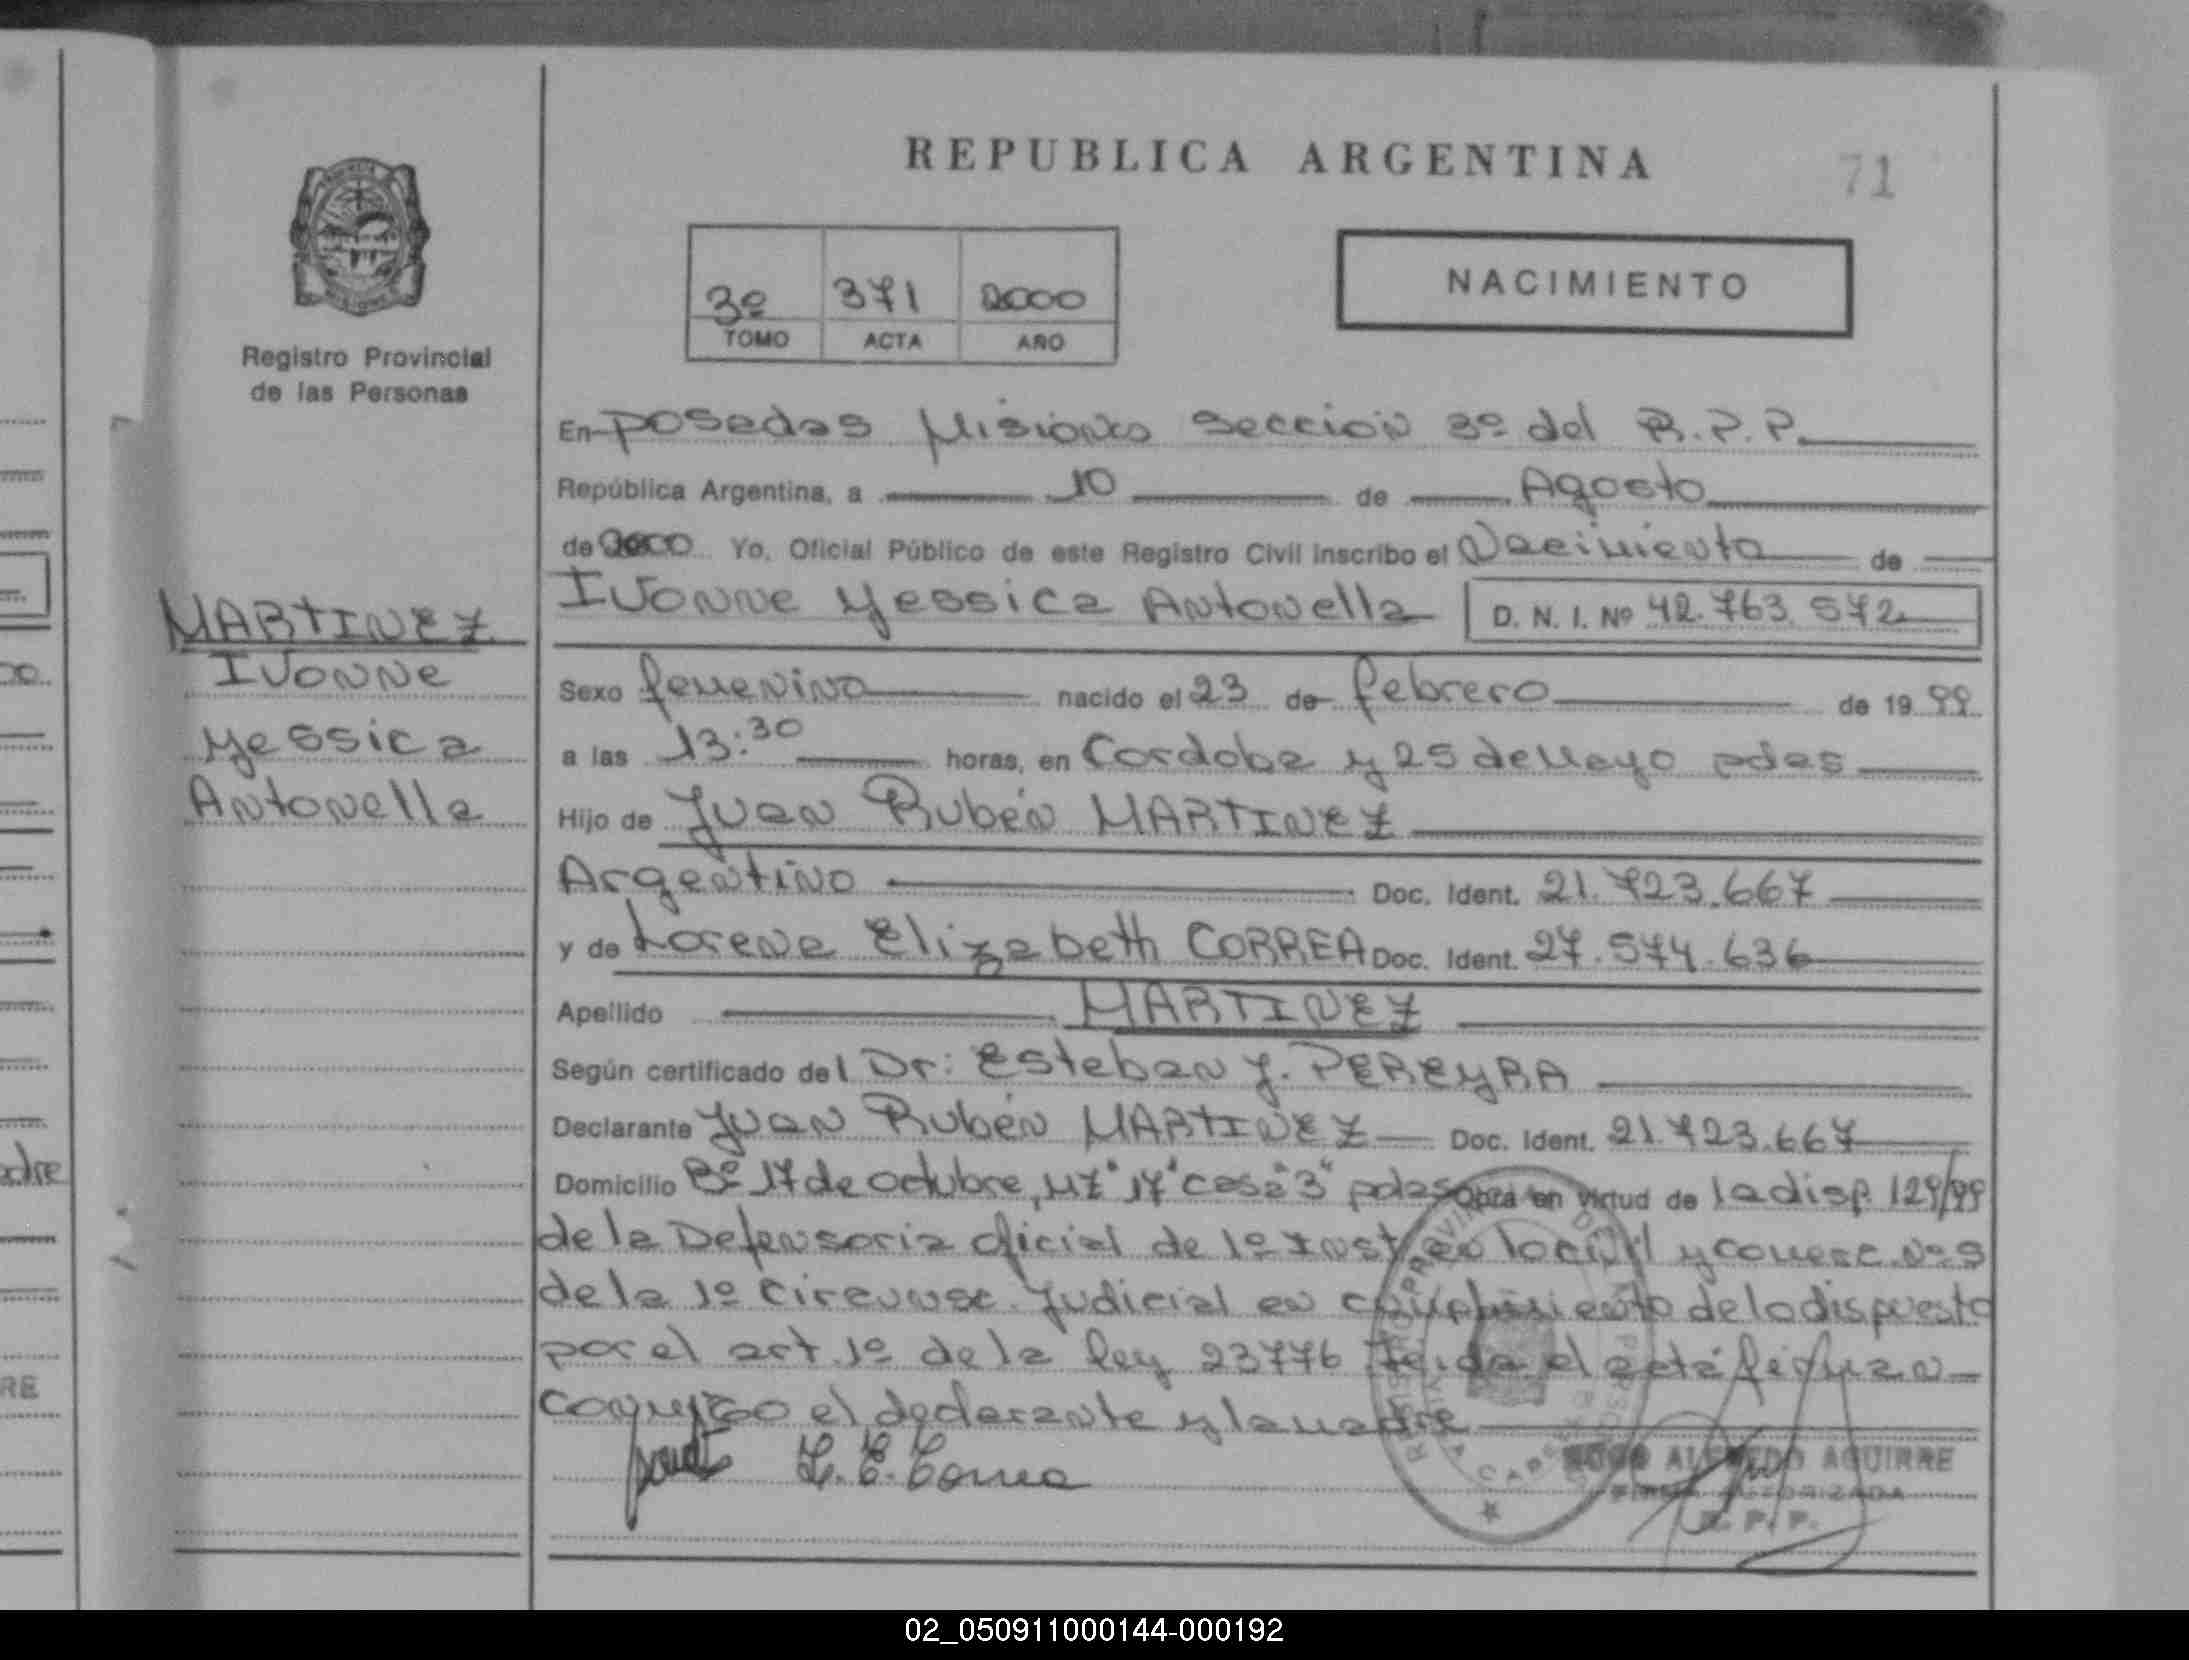 REPUBLICA ARGENTINA
71
3º 371 2000
TOMO ACTA AÑO
NACIMIENTO
Registro Provincial
de las Personas
MARTINEZ
Ivonne
Yessica
Antonella
En Posadas Misiones Sección 3º del R.P.P.
República Argentina, a 10 de Agosto
de 2000 Yo, Oficial Público de este Registro Civil inscribo el Nacimiento de
Ivonne Yessica Antonella D. N. I. Nº 42.763.572
Sexo femenino nacido el 23 de febrero de 19 99
a las 13:30 horas, en Cordoba y 25 de Mayo pdas
Hijo de Juan Rubén MARTINEZ
Argentino Doc. Ident. 21.723.667
y de Lorena Elizabeth CORREA Doc. Ident. 27.574.636
Apellido MARTINEZ
Según certificado del Dr: Esteban J. PEREYRA
Declarante Juan Rubén MARTINEZ Doc. Ident. 21.723.667
Domicilio Bº 17 de octubre, Mz "17" casa "3" pdas Obra en virtud de la disp. 129/99
de la Defensoria oficial de 1º Inst en lo civil y comerc. Nº 5
de la 1º Circunsc. Judicial en cumplimiento de lo dispuesto
por el art. 1º de la ley 23776 leida el acta firman
conmigo el declarante y la madre
L. E. Correa
HUGO ALFREDO AGUIRRE
FIRMA AUTORIZADA
R. P. P.
02_050911000144-000192